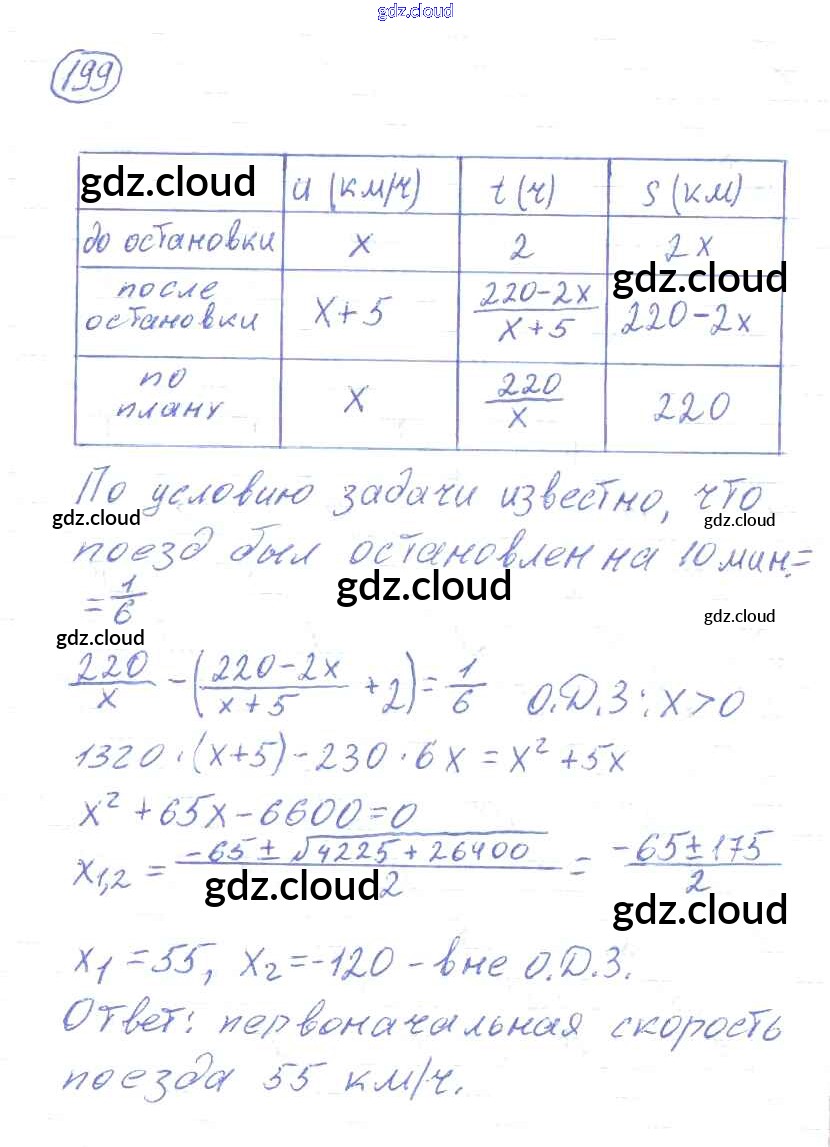 gdz.cloud
199
gdz.cloud u (км/ч) t (ч) s (км)
до остановки x 2 2x
gdz.cloud
после остановки x+5 (220-2x)/(x+5) 220-2x
по плану x 220/x 220
По условию задачи известно, что
gdz.cloud gdz.cloud
поезд был остановлен на 10 мин. =
= 1/6
gdz.cloud
gdz.cloud
gdz.cloud
220/x - ((220-2x)/(x+5) + 2) = 1/6 О.Д.З: x>0
1320·(x+5)-230·6x = x²+5x
x²+65x-6600=0
x1,2 = (-65±√4225+26400)/2 = (-65±175)/2
gdz.cloud
gdz.cloud
x1=55, x2=-120 - вне О.Д.З.
Ответ: первоначальная скорость
поезда 55 км/ч.